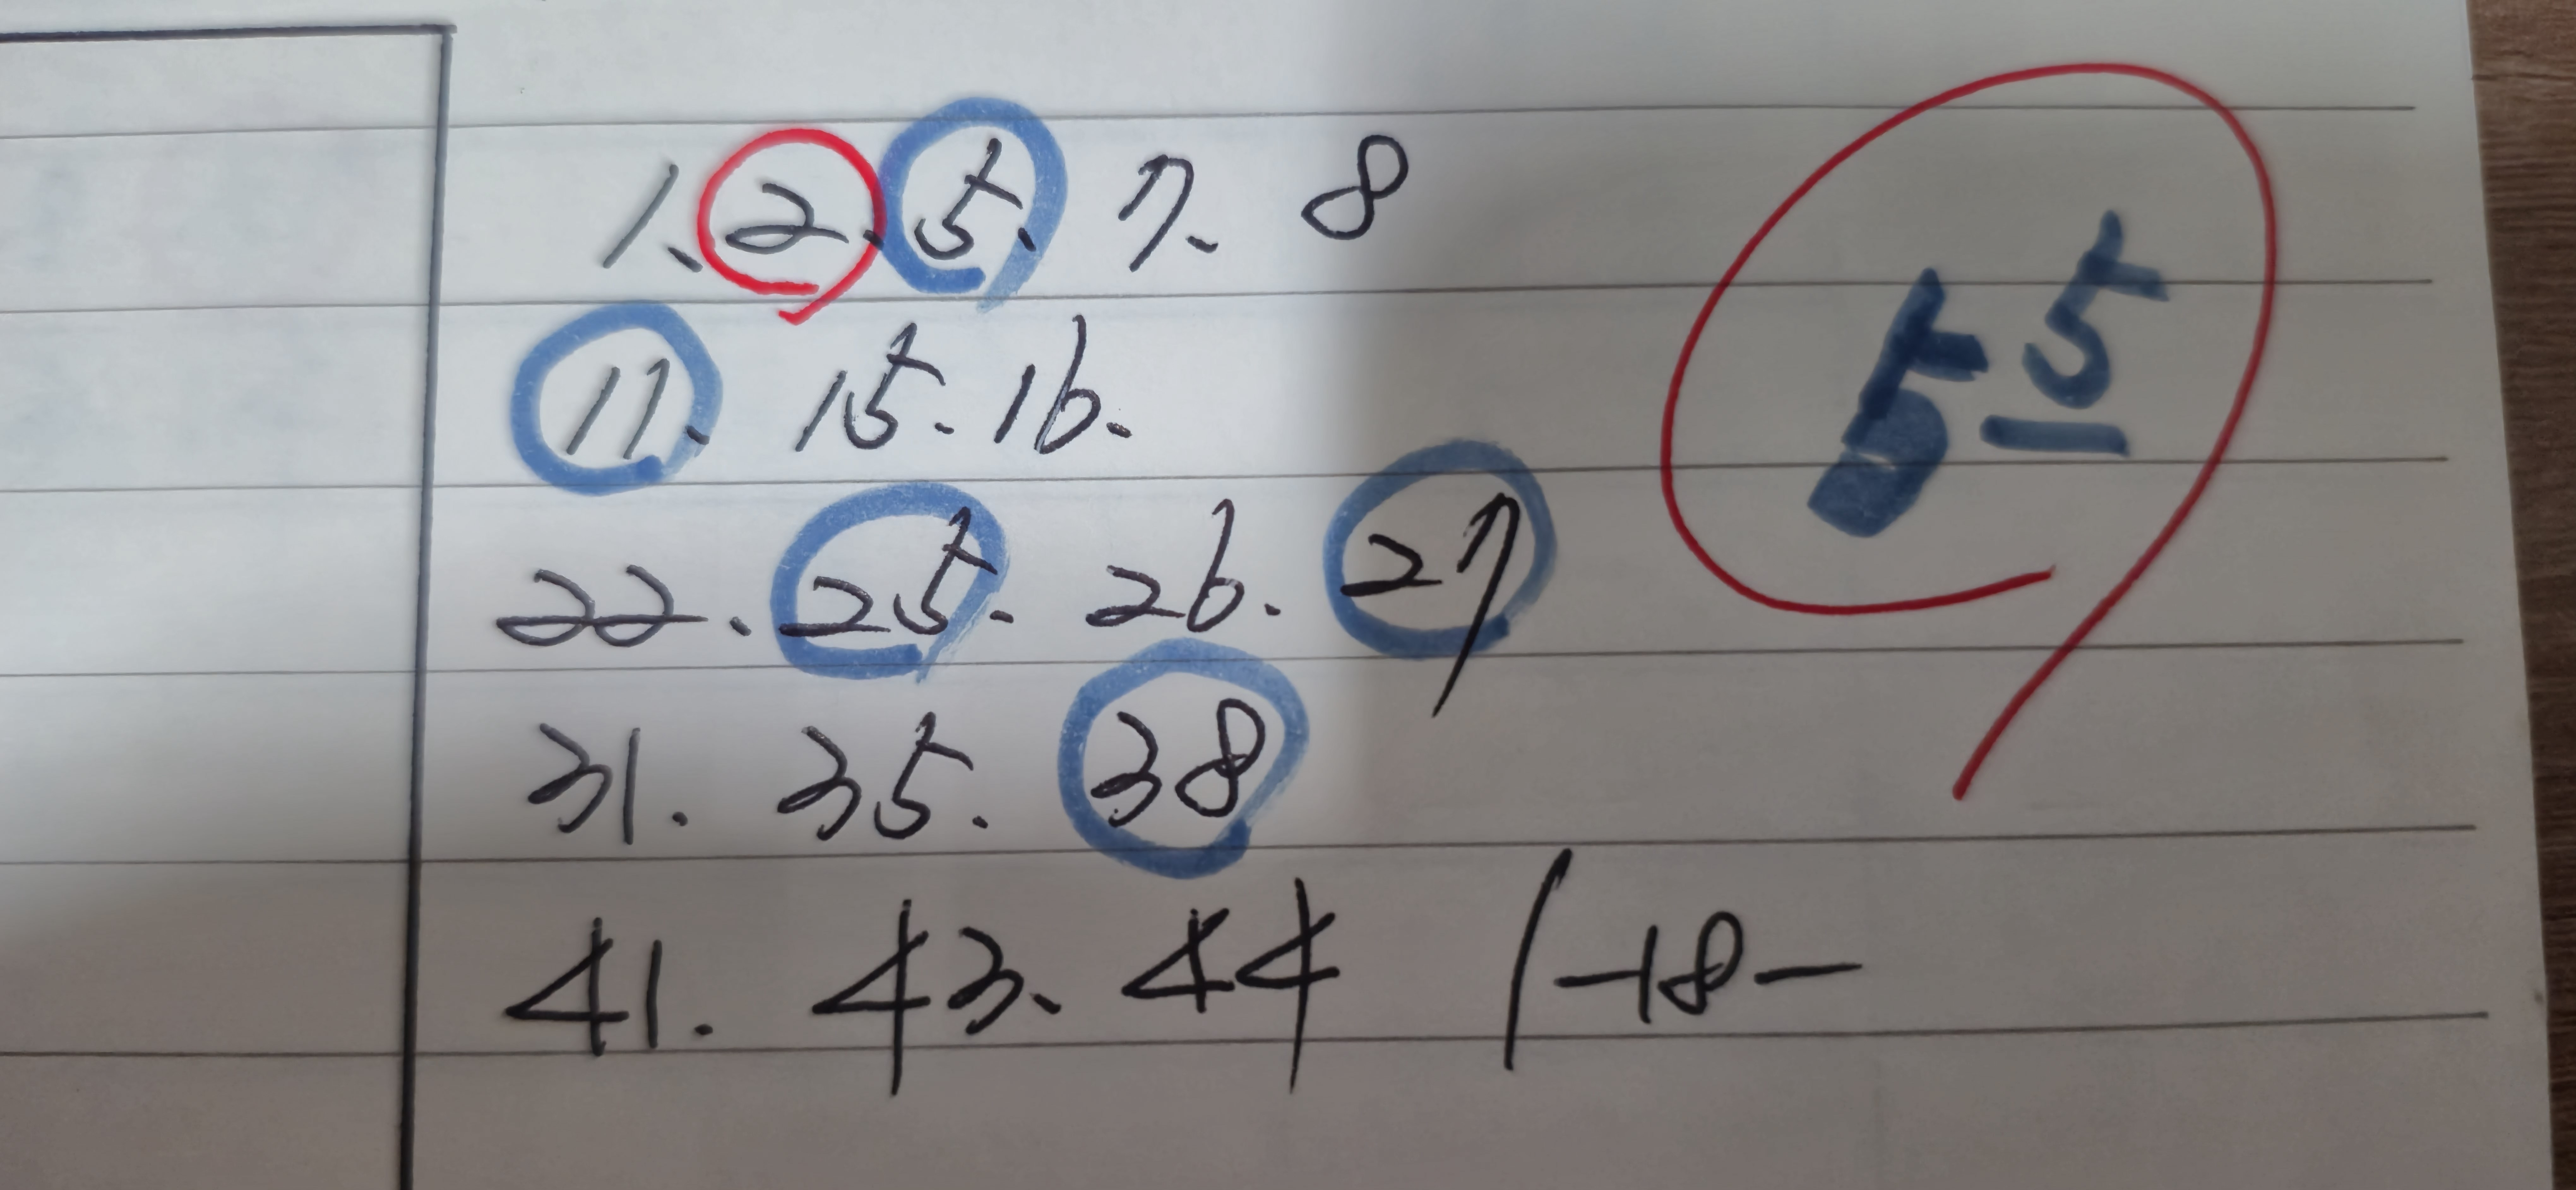 1、2、5、7、8
11、15.16.
22.25.26.27
31.35.38
41.43、44 /-18-
55